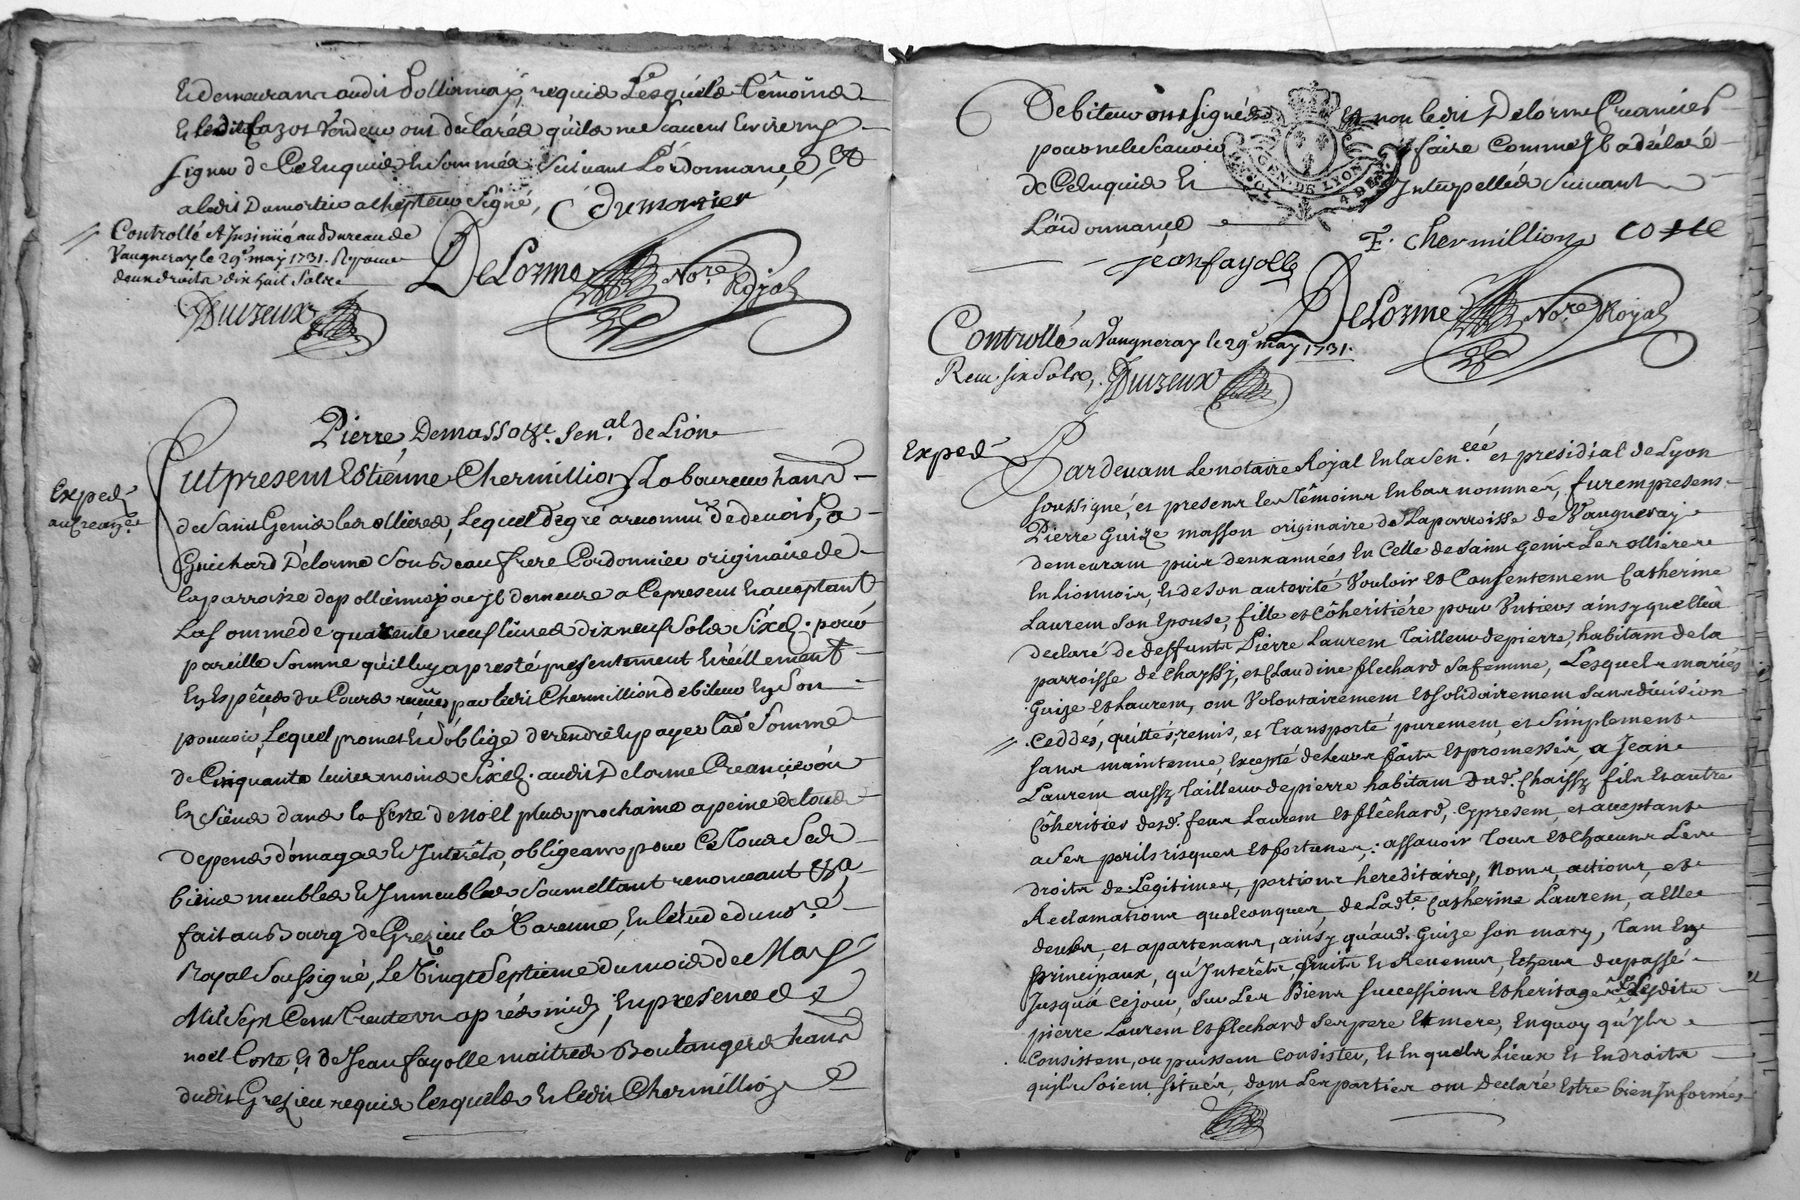 Et demeurant audit Pollionnay, requis Lesquels têmoins
Et ledit Cazot Vendeur ont declarés qu'ils ne scavent Ecrire ny
signer de Ce Enquis Et Sommés Suivant L'ordonnance, Et
a ledit Dumortier achepteur Signé, C Dumortier
Controllé et Insinué au Bureau de
Vaugneray le 29e may 1731. Reçu
deux droits dix huit Sols
DeLorme Nore Royal
Duizeux
Pierre Demasso &c. Senal de Lion
Expedé
au Crean.er
Fut present Estiénne Chermillion Laboureur habt
de Saint Genis les ollieres, Lequel de gré a reconnu de devoir, a
Guichard Delorme Son Beau frere Cordonnier originaire de
la parroisse de pollionnay ou Il demeure a Ce present Et acceptant
La Somme de quarente neuf livres dix neuf Sols Six d. pour
pareille Somme qu'il luy a presté presentement Et réellement
En Espêces du Cours reçües par ledit Chermillion debiteur En Son
pouvoir, Lequel promet Et S'oblige de rendre Et payer lad. Somme
de Cinquante livres moins Six d. audit Delorme Creancier ou
Es Siens dans la feste de Noël plus prochaine a peine de tous
depens domages Et Interêts, obligeant pour Ce Tous Ses
biens meubles Et Immeubles Soumettant renonceant &a
fait au Bourg de Grezieu la Varenne, En letude du nore
Royal Soussigné, Le Vingt Septieme du mois de May
Mil Sept Cent Trente un aprés midy, En presence de
noël Coste, Et de Jean fayolle maitres Boulangers habt
dudit Grezieu requis lesquels Et ledit Chermillion
Debiteur ont Signés Et non ledit Delorme Creancier
pour ne le Scavoir faire Comme Il a déclaré
de Ce Enquis Et Interpellés Suivant
L'ordonnance
GEN. DE LYON
F. Chermillion Coste
jean fayolle
DeLorme Nore Royal
Controllé a Vaugneray le 29e may 1731.
Reçu six Sols, Duizeux
Expedé
Pardevant Le notaire Royal En la Sen.ceé et presidial de Lyon
soussigné, et present les Têmoins En bas nommés, furent presens
Pierre Guize masson originaire de La parroisse de Vaugneray
demeurant puis deux années En Celle de Saint Genis Les ollieres
En Lionnois, Et de Son autorité Vouloir Et Consentement Catherine
Laurent Son Epouse, fille et Côheritiére pour Un tiers ainsy quelle a
declaré de deffunts Pierre Laurent Tailleur de pierre, habitant de la
parroisse de Chayssy, et Claudine flechard Sa femme, Lesquels mariés
Guize Et Laurent, ont Volontairement Et Solidairement Sans division
Ceddés, quittés, remis, et Transporté purement, et Simplement
sans maintenue, Excepté de leurs faits Et promesses, a Jean
Laurent aussy Tailleur de pierre habitant Dud. Chaissy fils Et autre
Côheritier desd. feux Laurent Et flêchard, cy present, et acceptant
a Ses perils risques Et fortunes, : assavoir Tous Et Chacuns Les
droits de Legitimes, portions hereditaires, Noms, actions, et
Reclamations quelconques, de Ladte Catherine Laurent, a Elle
deubs, et apartenans, ainsy qu'aud. Guize Son mary, Tant En
principaux, qu'Interêts, fruits Et Revenus, Echeus du passé
Jusqu'à Ce jour, Sur Les Biens Successions Et heritages desdits
pierre Laurent Et flechard Ses pere Et mere, En quoy qu'Ils
Consistent, ou puissent Consister, Et En quels Lieux Et Endroits
qu'Ils Soient Situés, dont Les parties ont Declaré Estre bien Informées